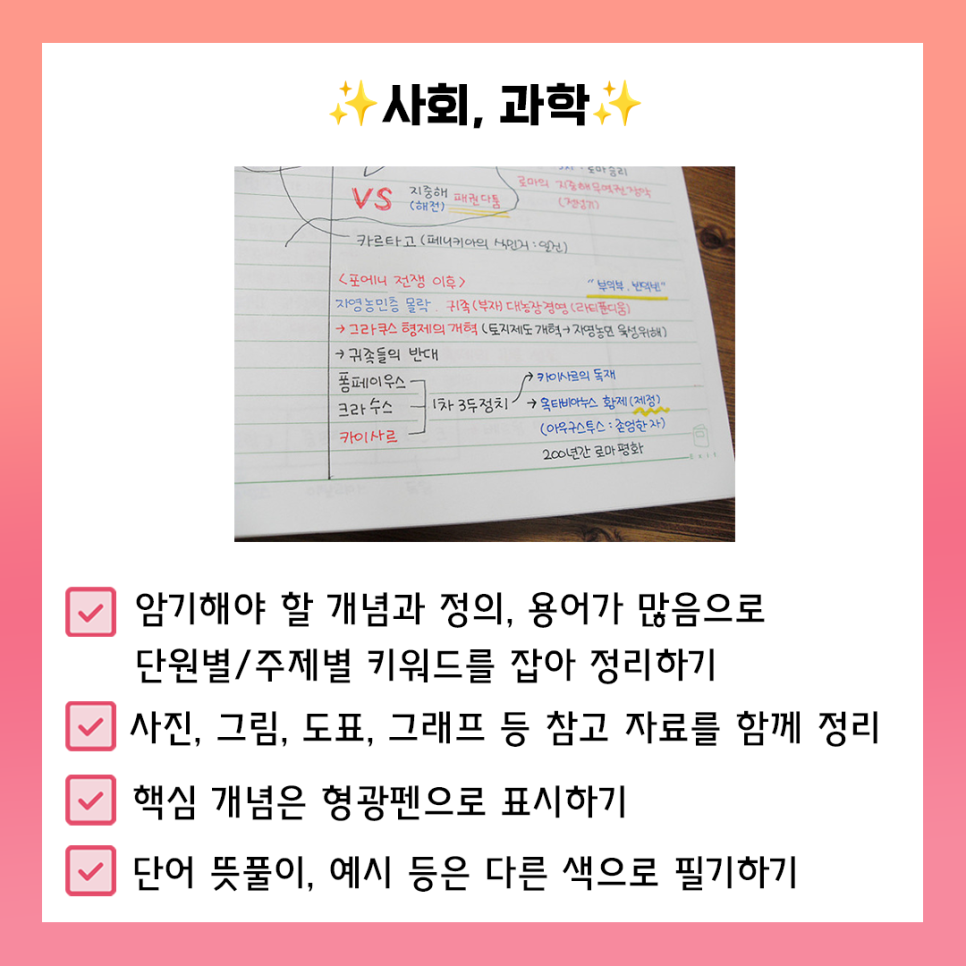 ✨사회, 과학✨
로마의 지중해무역권 장악
VS 지중해 패권다툼
(해전)
카르타고 (페니키아의 식민지 : 일신)
<포에니 전쟁 이후>
"부익부, 빈익빈"
자영농민층 몰락. 귀족(부자) 대농장경영 (라티푼디움)
→ 그라쿠스 형제의 개혁 (토지제도 개혁 → 자영농민 육성위해)
→ 귀족들의 반대
퐁페이우스
크라수스
카이사르
1차 3두정치
→ 카이사르의 독재
→ 옥타비아누스 황제 (제정)
(아우구스투스 : 존엄한 자)
200년간 로마 평화
암기해야 할 개념과 정의, 용어가 많음으로
단원별/주제별 키워드를 잡아 정리하기
사진, 그림, 도표, 그래프 등 참고 자료를 함께 정리
핵심 개념은 형광펜으로 표시하기
단어 뜻풀이, 예시 등은 다른 색으로 필기하기